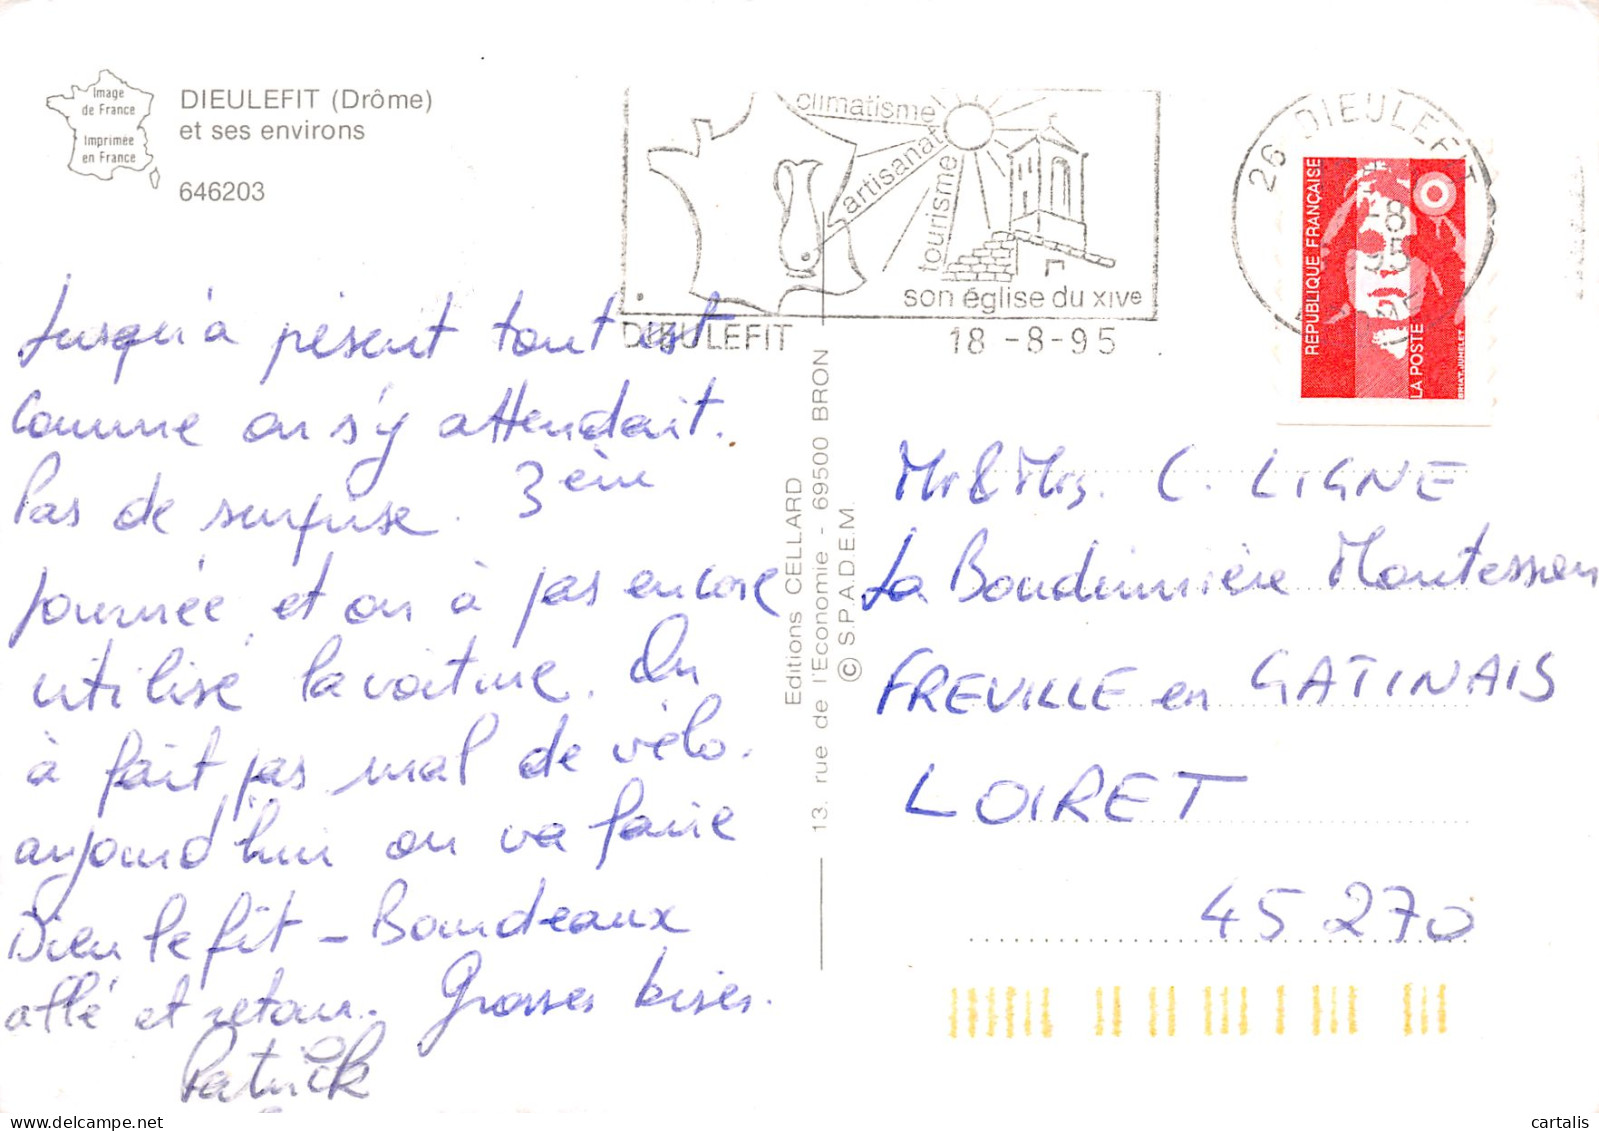 Image
de France
Imprimée
en France
DIEULEFIT (Drôme)
et ses environs
646203
climatisme
artisanat
tourisme
son église du XIVe
DIEULEFIT
18 -8-95
26 DIEULEFIT
-8
95
REPUBLIQUE FRANÇAISE
LA POSTE
BRIAT-JUMELET
Jusqu'à présent tout est
comme on s'y attendait.
Pas de surprise. 3ème
journée et on à pas encore
utilisé la voiture. On
à fait pas mal de vélo.
aujourd'hui on va faire
Dieu le fit - Bourdeaux
allé et retour. Grosses bises.
Patrick
Editions CELLARD
13. rue de l'Economie - 69500 BRON
© S.P.A.D.E.M.
Mr & Mrs. C. LIGNE
La Boudinnière Montesson
FREVILLE en GATINAIS
LOIRET
45270
cartalis